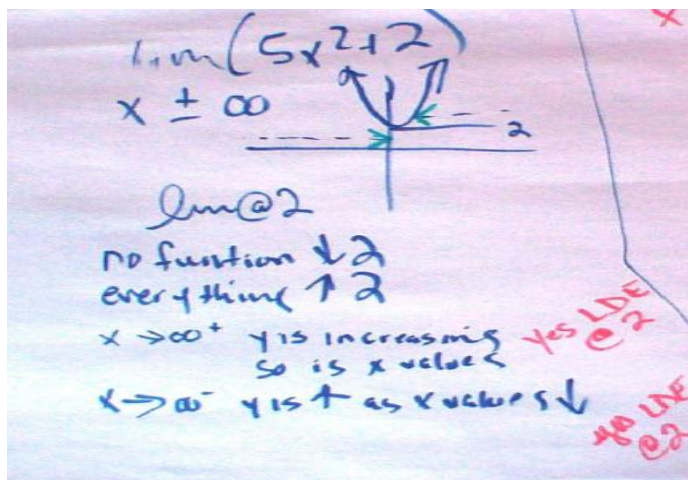 lim(5x²+2)
x ± ∞
2
lim@2
no function ↓2
everything ↑2
x →∞⁺ y is increasing
so is x values
x→∞⁻ y is ↑ as x values ↓
Yes LDE
@ 2
yes LDE
@2